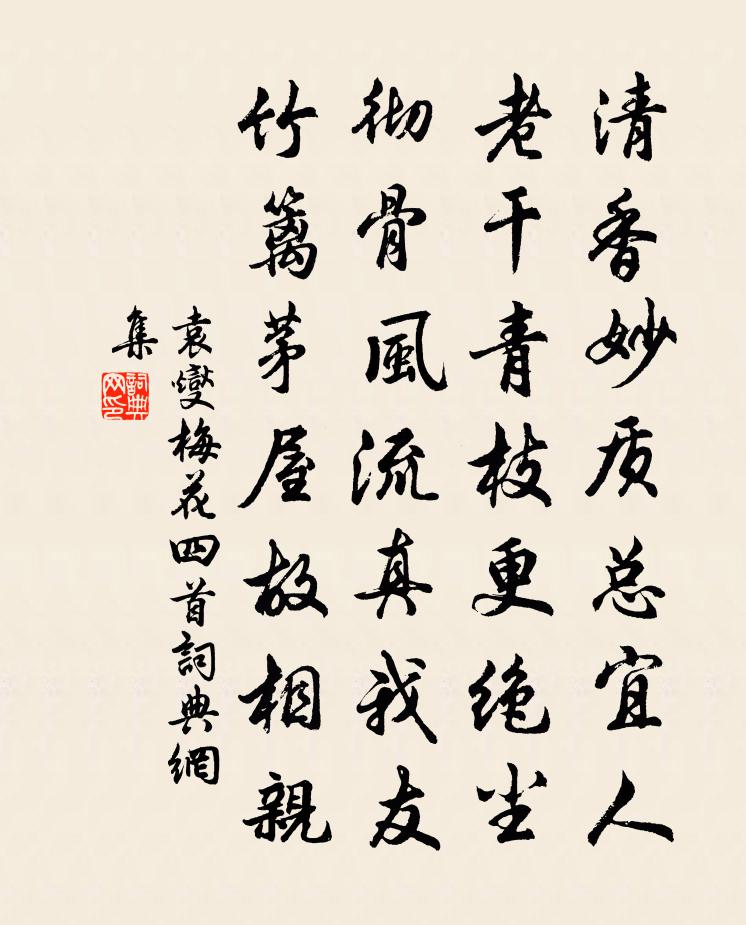 清香妙质总宜人
老干青枝更绝尘
彻骨風流真我友
竹篱茅屋故相親
袁燮梅花四首詞典網
集
詞典
网印